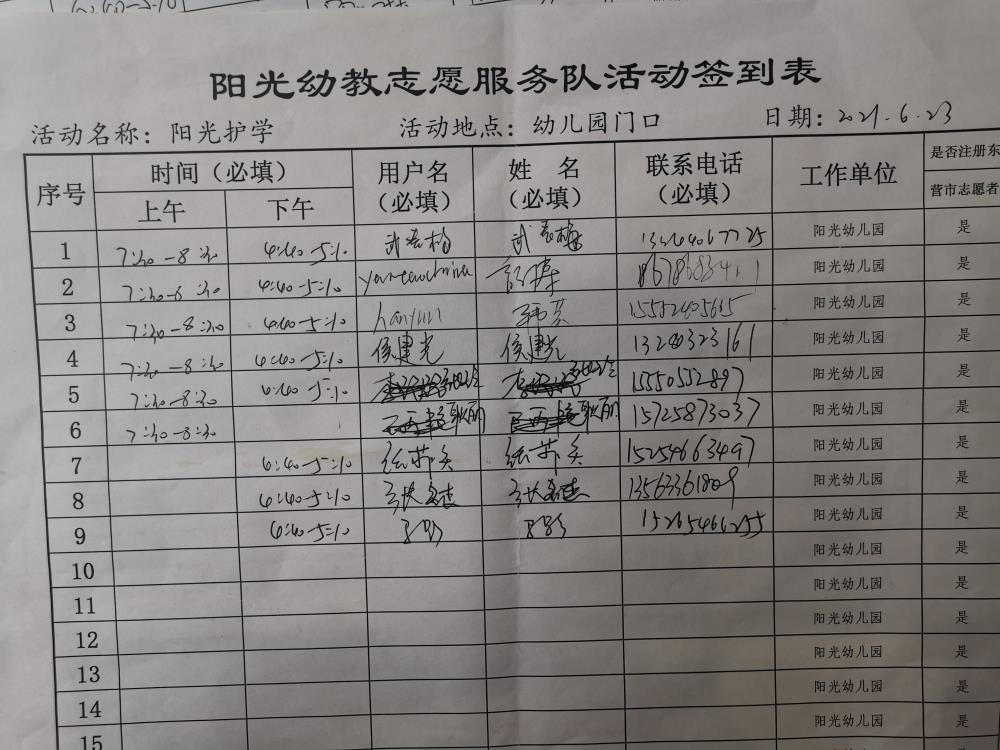 阳光幼教志愿服务队活动签到表
活动名称：阳光护学 活动地点：幼儿园门口 日期：2021.6.23
序号 时间（必填） 用户名（必填） 姓名（必填） 联系电话（必填） 工作单位 是否注册东营市志愿者
上午 下午
1 7:30-8:30 4:40-5:10 阳光幼儿园 是
2 7:30-8:30 4:40-5:10 阳光幼儿园 是
3 7:30-8:30 4:40-5:10 hanyun 15552405615 阳光幼儿园 是
4 7:30-8:30 4:40-5:10 侯建光 侯建光 13280323161 阳光幼儿园 是
5 7:30-8:30 4:40-5:10 15550552897 阳光幼儿园 是
6 7:30-8:30 耿丽 耿丽 15725873037 阳光幼儿园 是
7 4:40-5:10 15254663497 阳光幼儿园 是
8 4:40-5:10 13563361809 阳光幼儿园 是
9 4:40-5:10 15265466255 阳光幼儿园 是
10 阳光幼儿园 是
11 阳光幼儿园 是
12 阳光幼儿园 是
13 阳光幼儿园 是
14 阳光幼儿园 是
15 阳光幼儿园 是